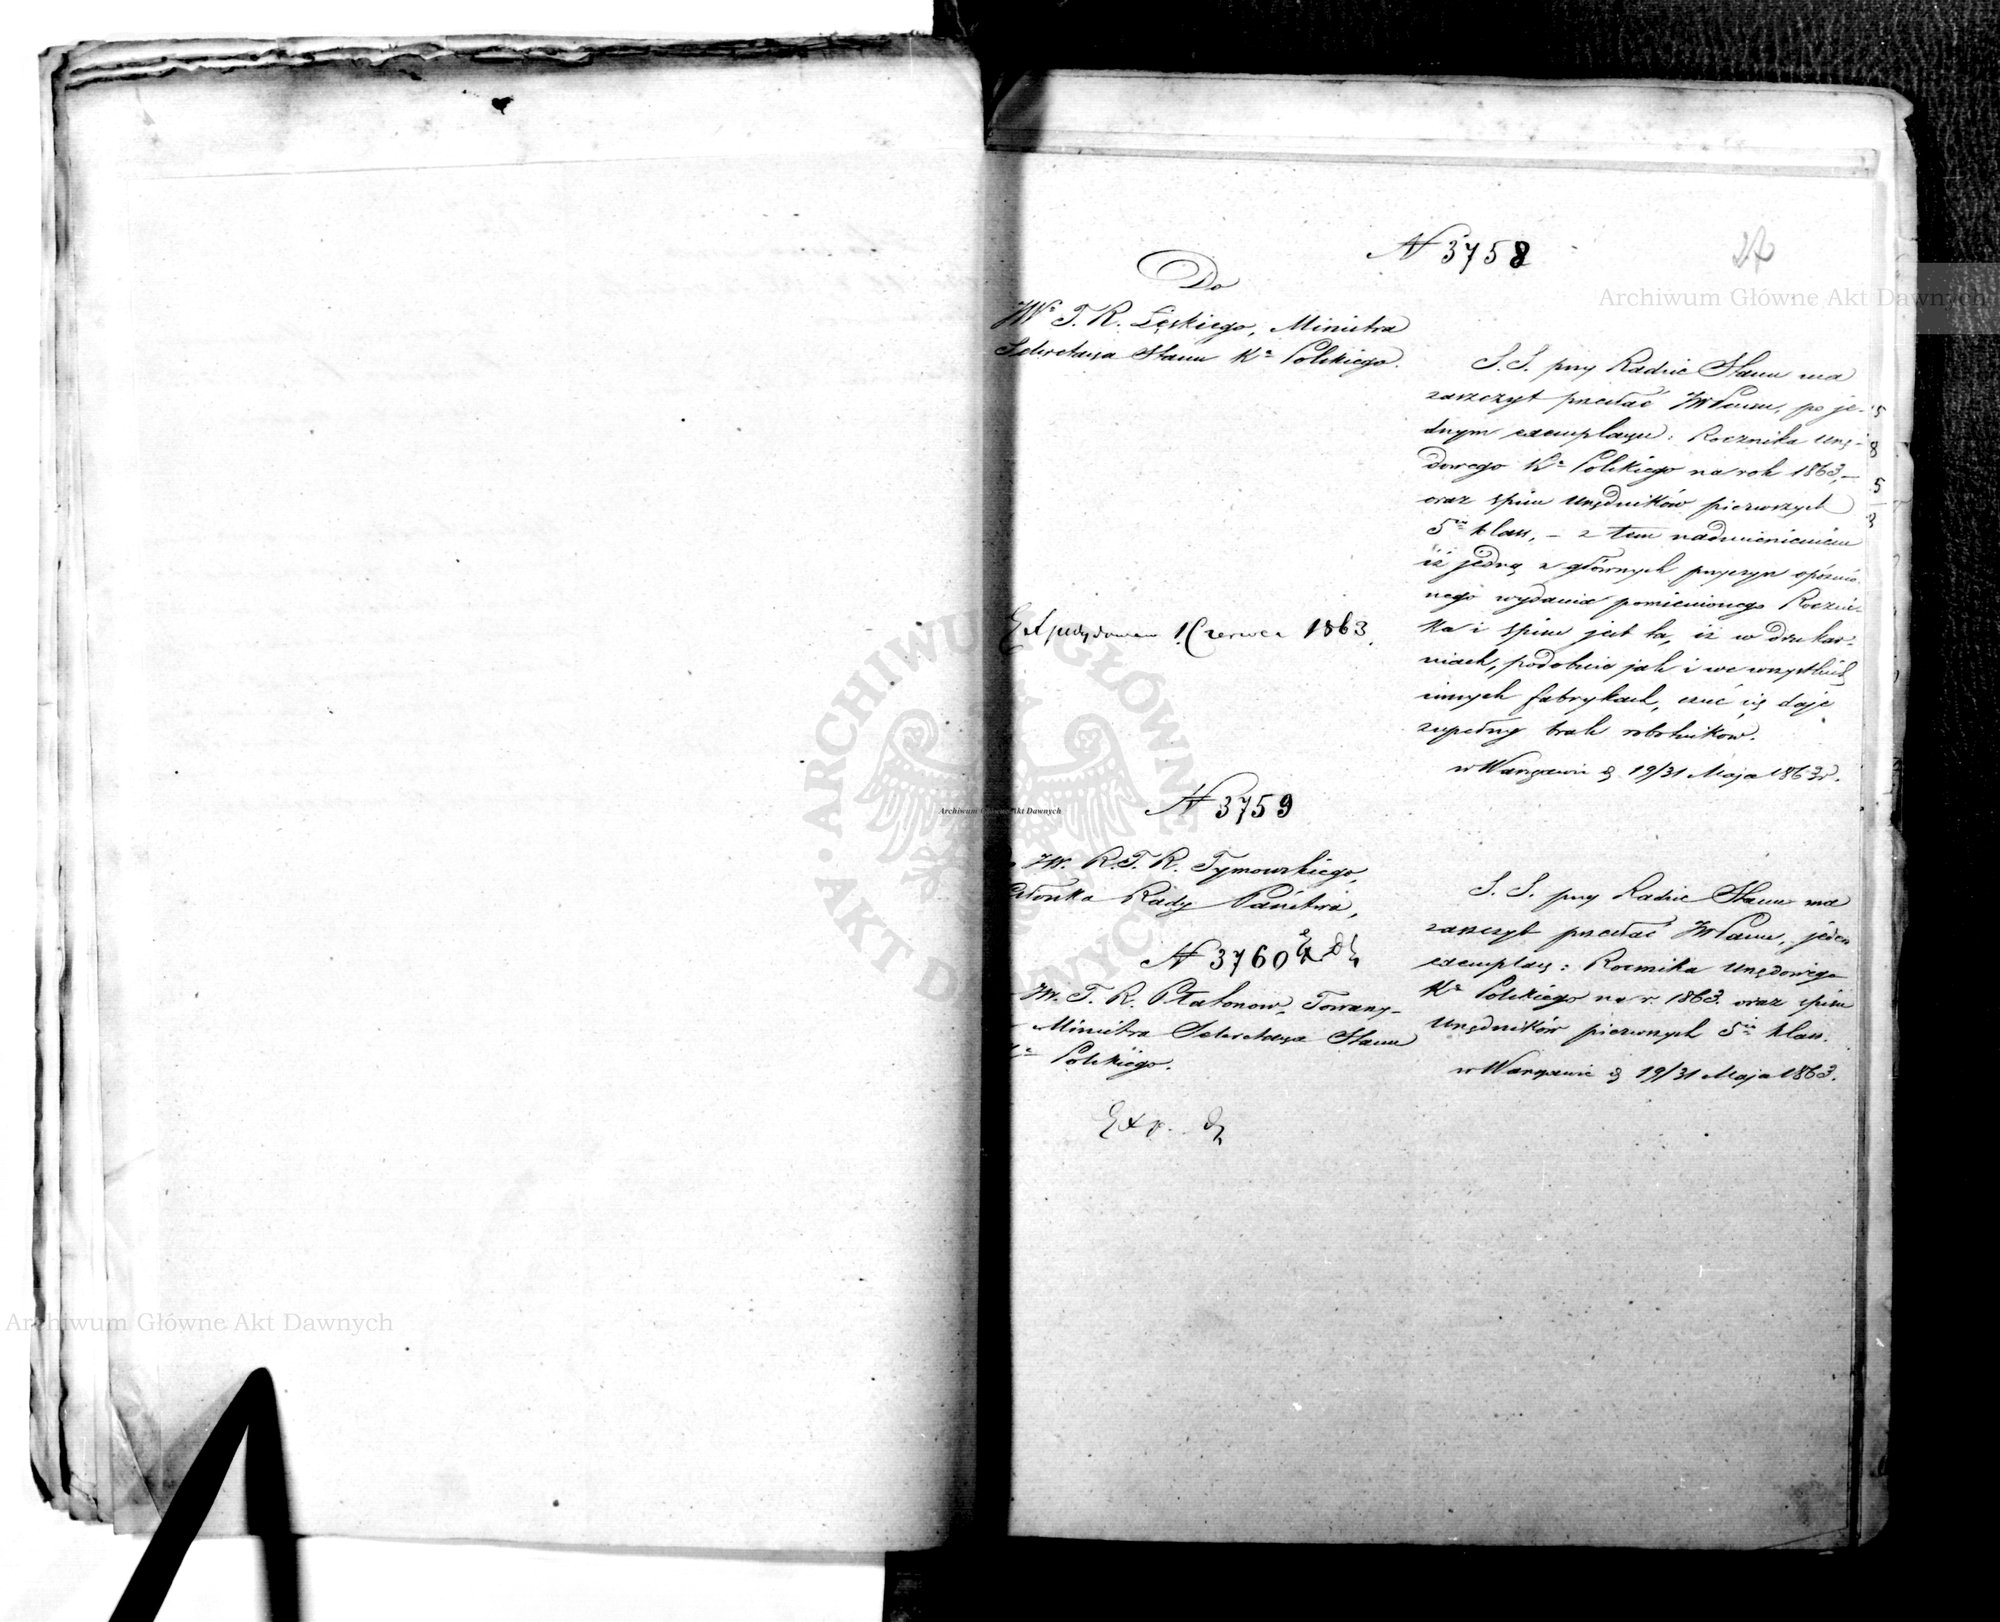 N 3758
27
Do
JWo T. R. Łęskiego, Ministra
Sekretarza Stanu Ka Polskiego.
S. S. przy Radzie Stanu ma
zaszczyt przesłać JWPanu, po je-
dnym exemplarzu: Rocznika Urzę-
dowego Ka Polskiego na rok 1863,—
oraz spisu Urzędników pierwszych
5iu klass, – z tem nadmienieniem
iż jedną z głównych przyczyn opóźnio-
nego wydania pomienionego Roczni-
ka i spisu jest ta, iż w drukar-
niach, podobnie jak i we wszystkich
innych fabrykach, czuć się daje
zupełny brak robotników.
w Warszawie d. 19/31 Maja 1863 r.
Expedyowano 1 Czerwca 1863.
N 3759
JW. R. T. R. Tymowskiego,
Członka Rady Państwa,
N 3760
JW. T. R. Płatonow, Towarzy-
Ministra Sekretarza Stanu
Ka Polskiego.
Exp.
S. S. przy Radzie Stanu ma
zaszczyt przesłać JWPanu, jeden
exemplarz: Rocznika Urzędowego
Ka Polskiego na r. 1863. oraz spisu
Urzędników pierwszych 5iu klass.
w Warszawie d. 19/31 Maja 1863.
5
8
5
3
Archiwum Główne Akt Dawnych
Archiwum Główne Akt Dawnych
Archiwum Główne Akt Dawnych
ARCHIWUM GŁÓWNE AKT DAWNYCH